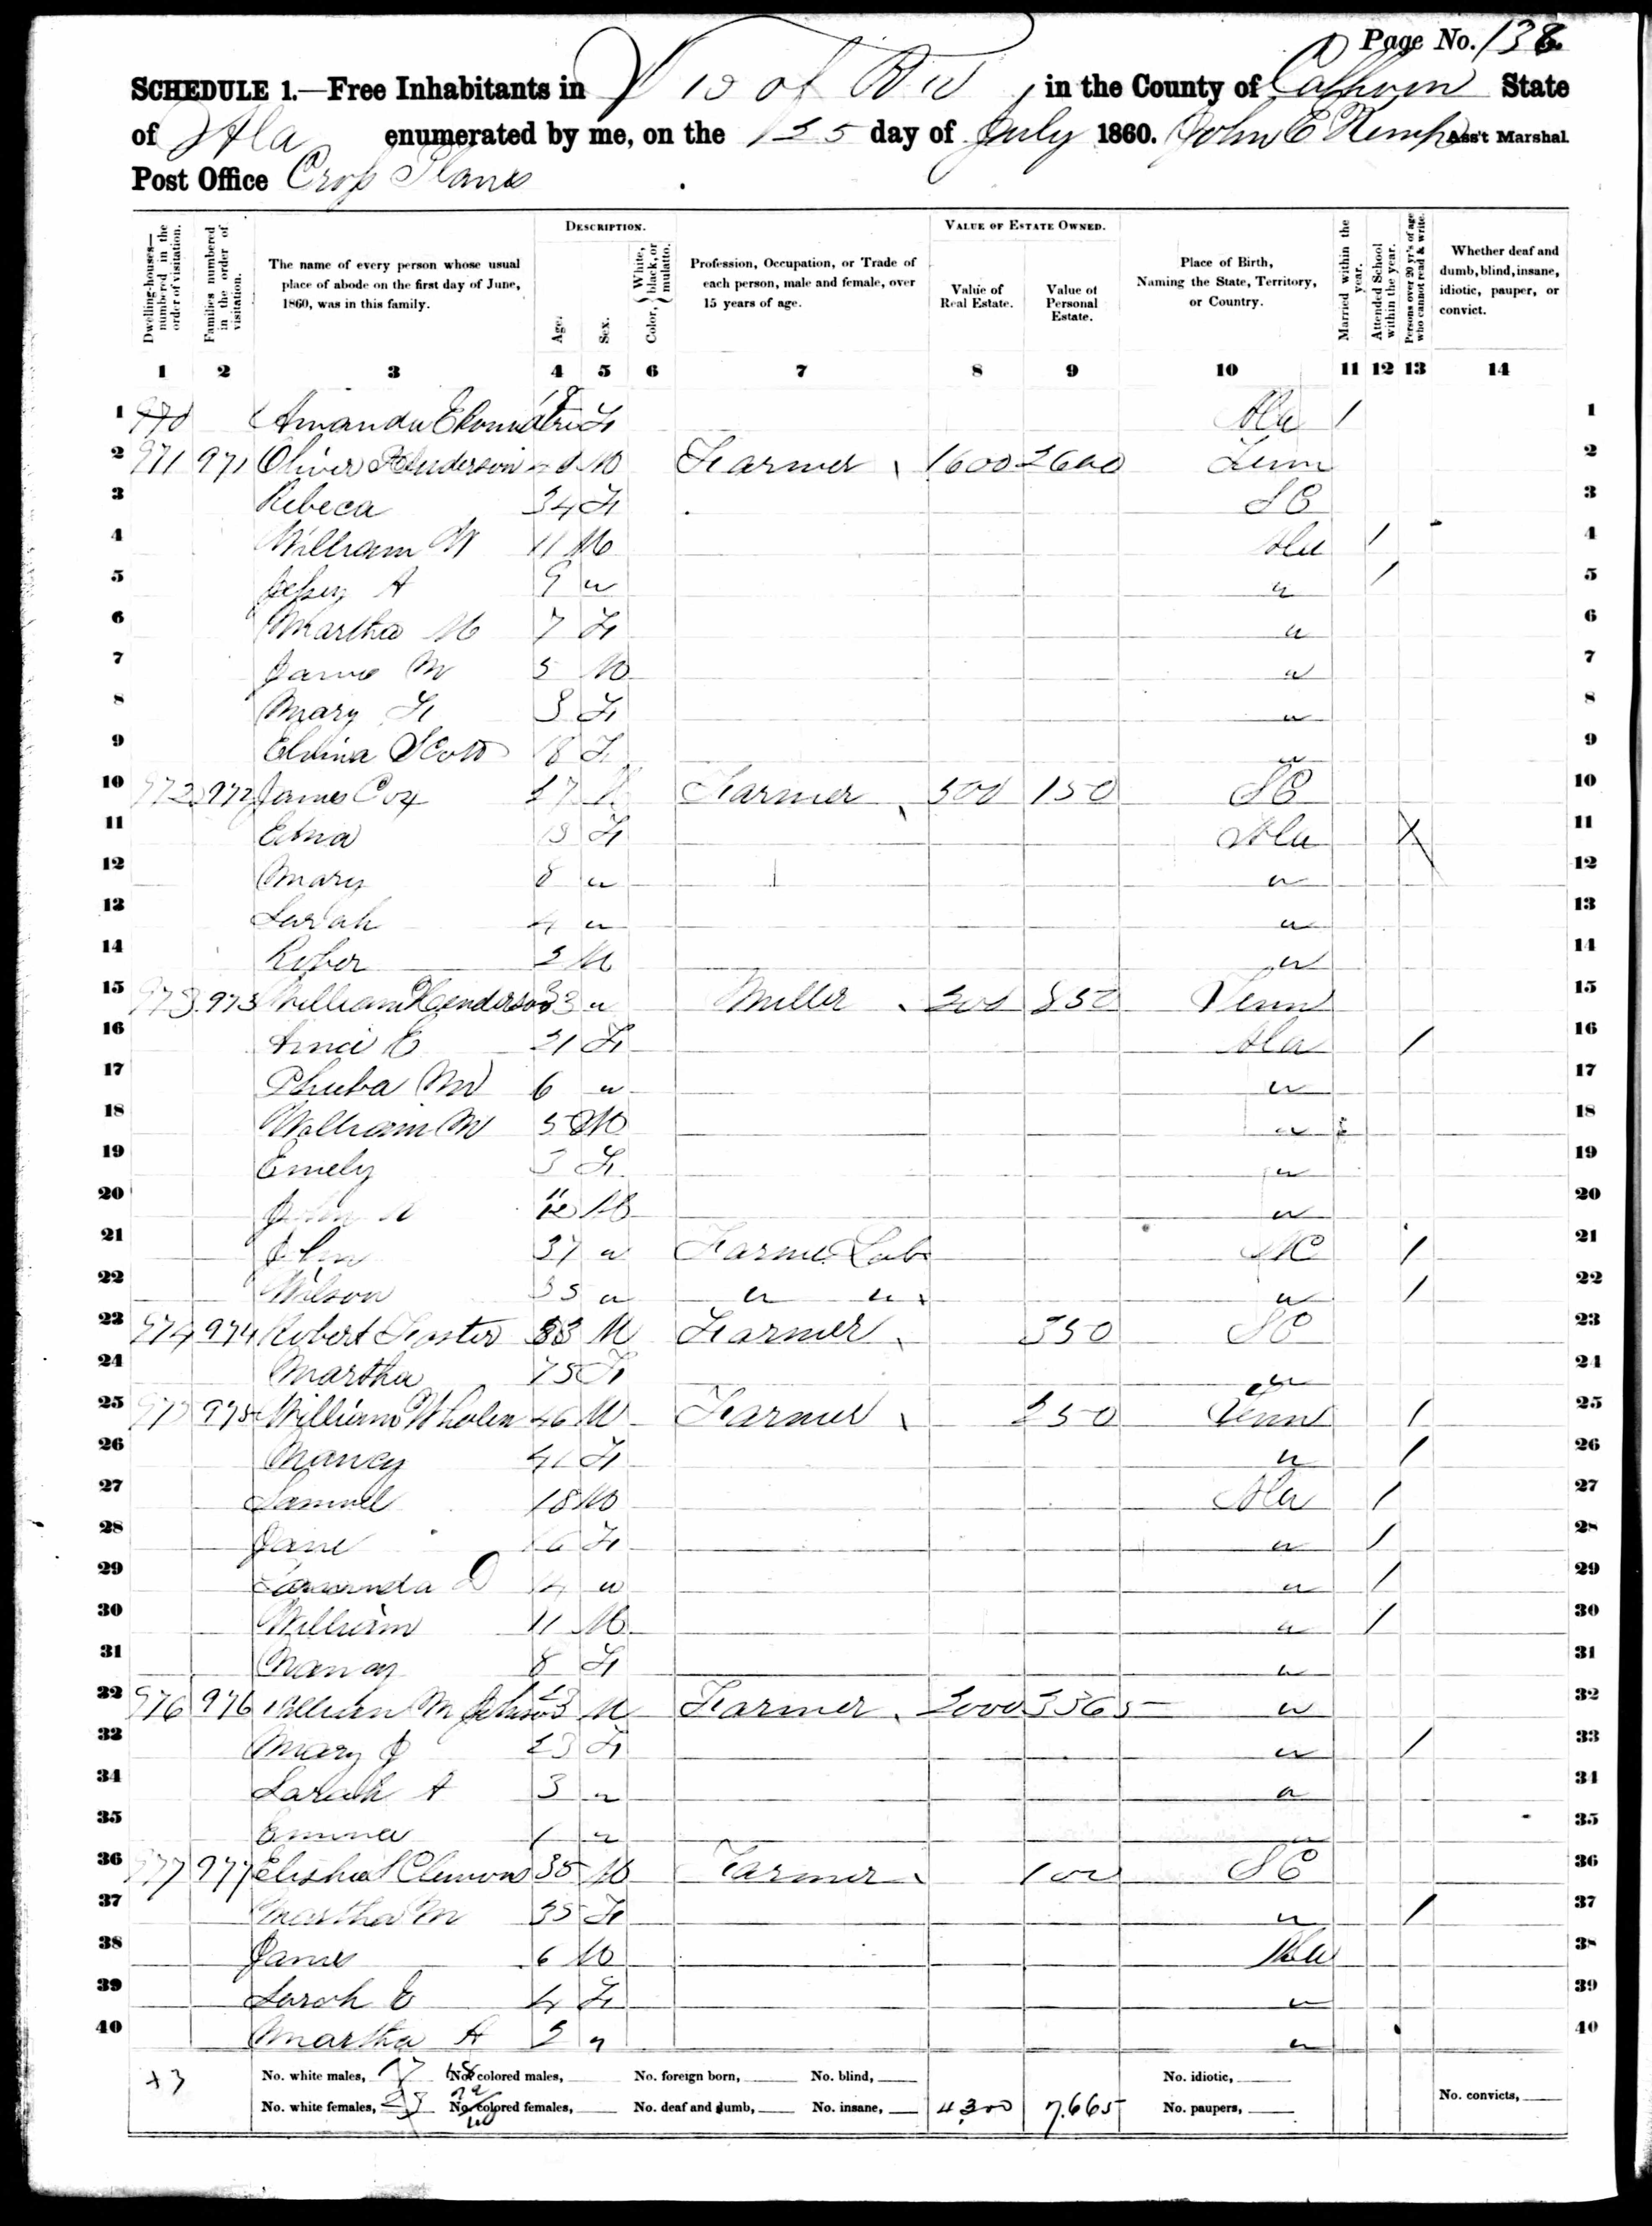 Page No. 138
SCHEDULE 1.—Free Inhabitants in in the County of Calhoun State
of Ala enumerated by me, on the 25 day of July 1860. John E Kemp Ass't Marshal.
Post Office Cross Plains
DESCRIPTION. VALUE OF ESTATE OWNED.
Dwelling-houses—numbered in the order of visitation. Families numbered in the order of visitation. The name of every person whose usual place of abode on the first day of June, 1860, was in this family. Age. Sex. Color, { White, black, or mulatto. Profession, Occupation, or Trade of each person, male and female, over 15 years of age. Value of Real Estate. Value of Personal Estate. Place of Birth, Naming the State, Territory, or Country. Married within the year. Attended School within the year. Persons over 20 yr's of age who cannot read & write. Whether deaf and dumb, blind, insane, idiotic, pauper, or convict.
1 2 3 4 5 6 7 8 9 10 11 12 13 14
1 970 Amanda E 18 F Ala / 1
2 971 971 Oliver Henderson M Farmer 1600 2600 Tenn 2
3 Rebeca 34 F S C 3
4 William W 11 M Ala / 4
5 A 9 " " / 5
6 Martha M 7 F " 6
7 James M 5 M " 7
8 Mary F 3 F " 8
9 Elvina Scott 18 F " 9
10 972 972 James Cox 27 M Farmer 500 150 S C 10
11 Edna F Ala X 11
12 Mary 8 " " 12
13 Sarah 4 " " 13
14 Rober 2 M " 14
15 973 973 William Henderson 33 " Miller 200 850 Tenn 15
16 E 21 F Ala / 16
17 Pheuba M 6 " " 17
18 William M 5 M " 18
19 Emely 3 F " 19
20 John 11/12 M " 20
21 John 37 " Farm Lab N C / 21
22 Wilson 35 " " " " / 22
23 974 974 Robert Foster M Farmer 350 S C 23
24 Martha 75 F " 24
25 975 975 William Wholen 46 M Farmer 250 Tenn / 25
26 Nancy 41 F " / 26
27 Samuel 18 M Ala / 27
28 Jane 16 F " / 28
29 D 14 " " / 29
30 William 11 M " / 30
31 Nancy 8 F " 31
32 976 976 William M Johnson 23 M Farmer 2000 3365 " 32
33 Mary J 23 F " / 33
34 Sarah A 3 " " 34
35 Emma 1 " " 35
36 977 977 Elisha Clemons 35 M Farmer 100 S C 36
37 Martha M 35 F " / 37
38 James 6 M Ala 38
39 Sarah E 4 F " 39
40 Martha A 2 " " 40
No. white males, 17 No. colored males, No. foreign born, No. blind, No. idiotic,
No. white females, 23 No. colored females, No. deaf and dumb, No. insane, 4300 7.665 No. paupers, No. convicts,